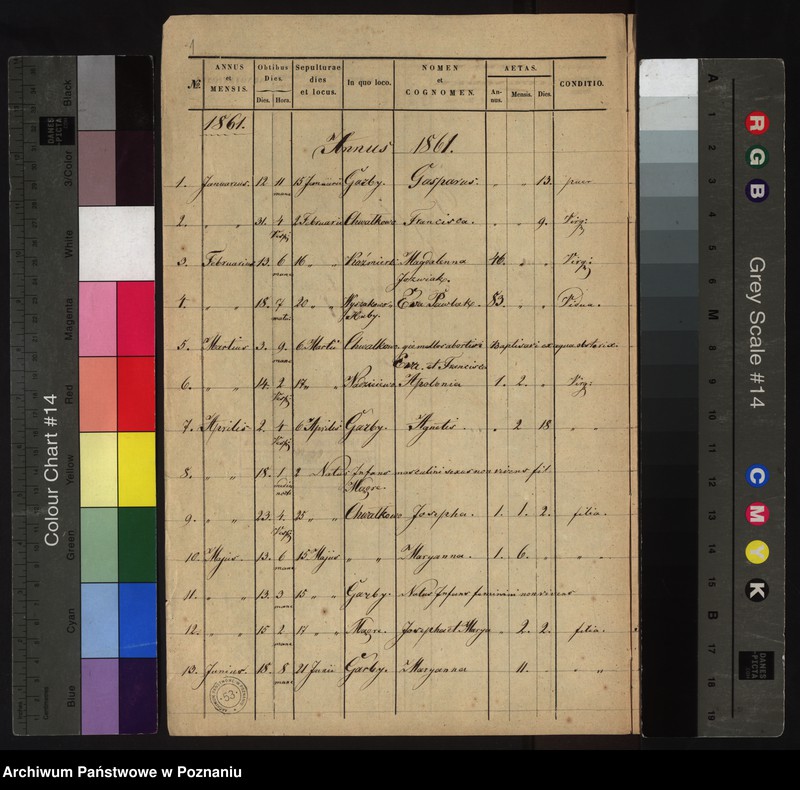 1
№.
ANNUS et MENSIS.
Obitibus Dies.
Dies. Hora.
Sepulturae dies et locus.
In quo loco.
NOMEN et COGNOMEN.
AETAS.
Annus. Mensis. Dies.
CONDITIO.
1861.
Annus 1861.
1. Januarius. 12. 11 mane 15 Januarii Garby. Gasparus. „ „ 13. puer
2. „ „ 31. 4 Vesp. 2 Februarii Chwałkowo Francisca. „ „ 9. Virg:
3. Februarius 13. 6 mane 16 „ „ Kaźmierki Magdalenna 46. „ „ Virg:
Jozwiak.
4. „ „ 18. 7 20 „ „ Eva Pawlak. 83. „ „ Vidua.
Huby.
5. Martius 3. 9. mane 6 Martii Chwałkowo
Eva et Francisca
6. „ „ 14. 2 Vesp. 17 „ „ Apolonia 1. 2. „ Virg:
7. Aprilis 2. 4 Vesp. 6 Aprilis Garby. Agnetis. „ 2 18 „ „
8. „ „ 18. 1 2 Natus Infans masculini sexus non vivens fil.
9. „ „ 23. 4. Vesp. 25 „ „ Chwałkowo Josepha. 1. 1. 2. filia.
10. Majus 13. 6 mane 15 Majus „ „ Maryanna. 1. 6. „ „ „
11. „ „ 13. 3 mane 15 „ „ Garby. Natus Infans feminini non vivens
12. „ „ 15 2 mane 17 „ „ Josepha et Marya „ 2. 2. filia.
13. Junius. 18. 8 mane 21 Junii Garby. Maryanna 11. „ „
53
Colour Chart #14
Grey Scale #14
Black
3/Color
White
Magenta
Red
Yellow
Green
Cyan
Blue
DANES PICTA
R
G
B
C
M
Y
K
A
1
2
3
4
5
6
M
8
9
10
11
12
13
14
15
B
17
18
19
Archiwum Państwowe w Poznaniu